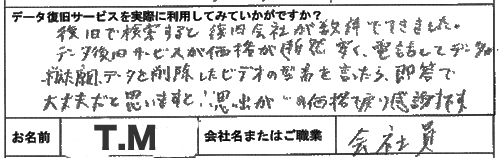 データ復旧サービスを実際に利用してみていかがですか？
復旧で検索すると復旧会社が数件でてきました。
データ復旧サービスが価格が断然安く、電話してデータ
削除したビデオの型番を言ったら、即答で
大丈夫だと思いますと!!思い出が の価格で戻り感謝です
お名前 T.M 会社名またはご職業 会社員